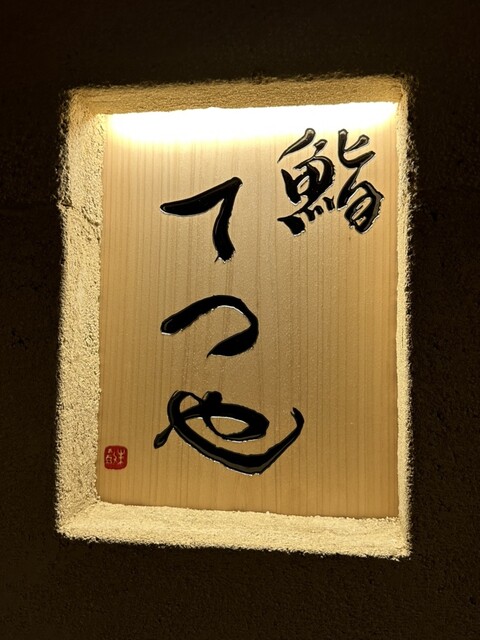 鮨
てつや